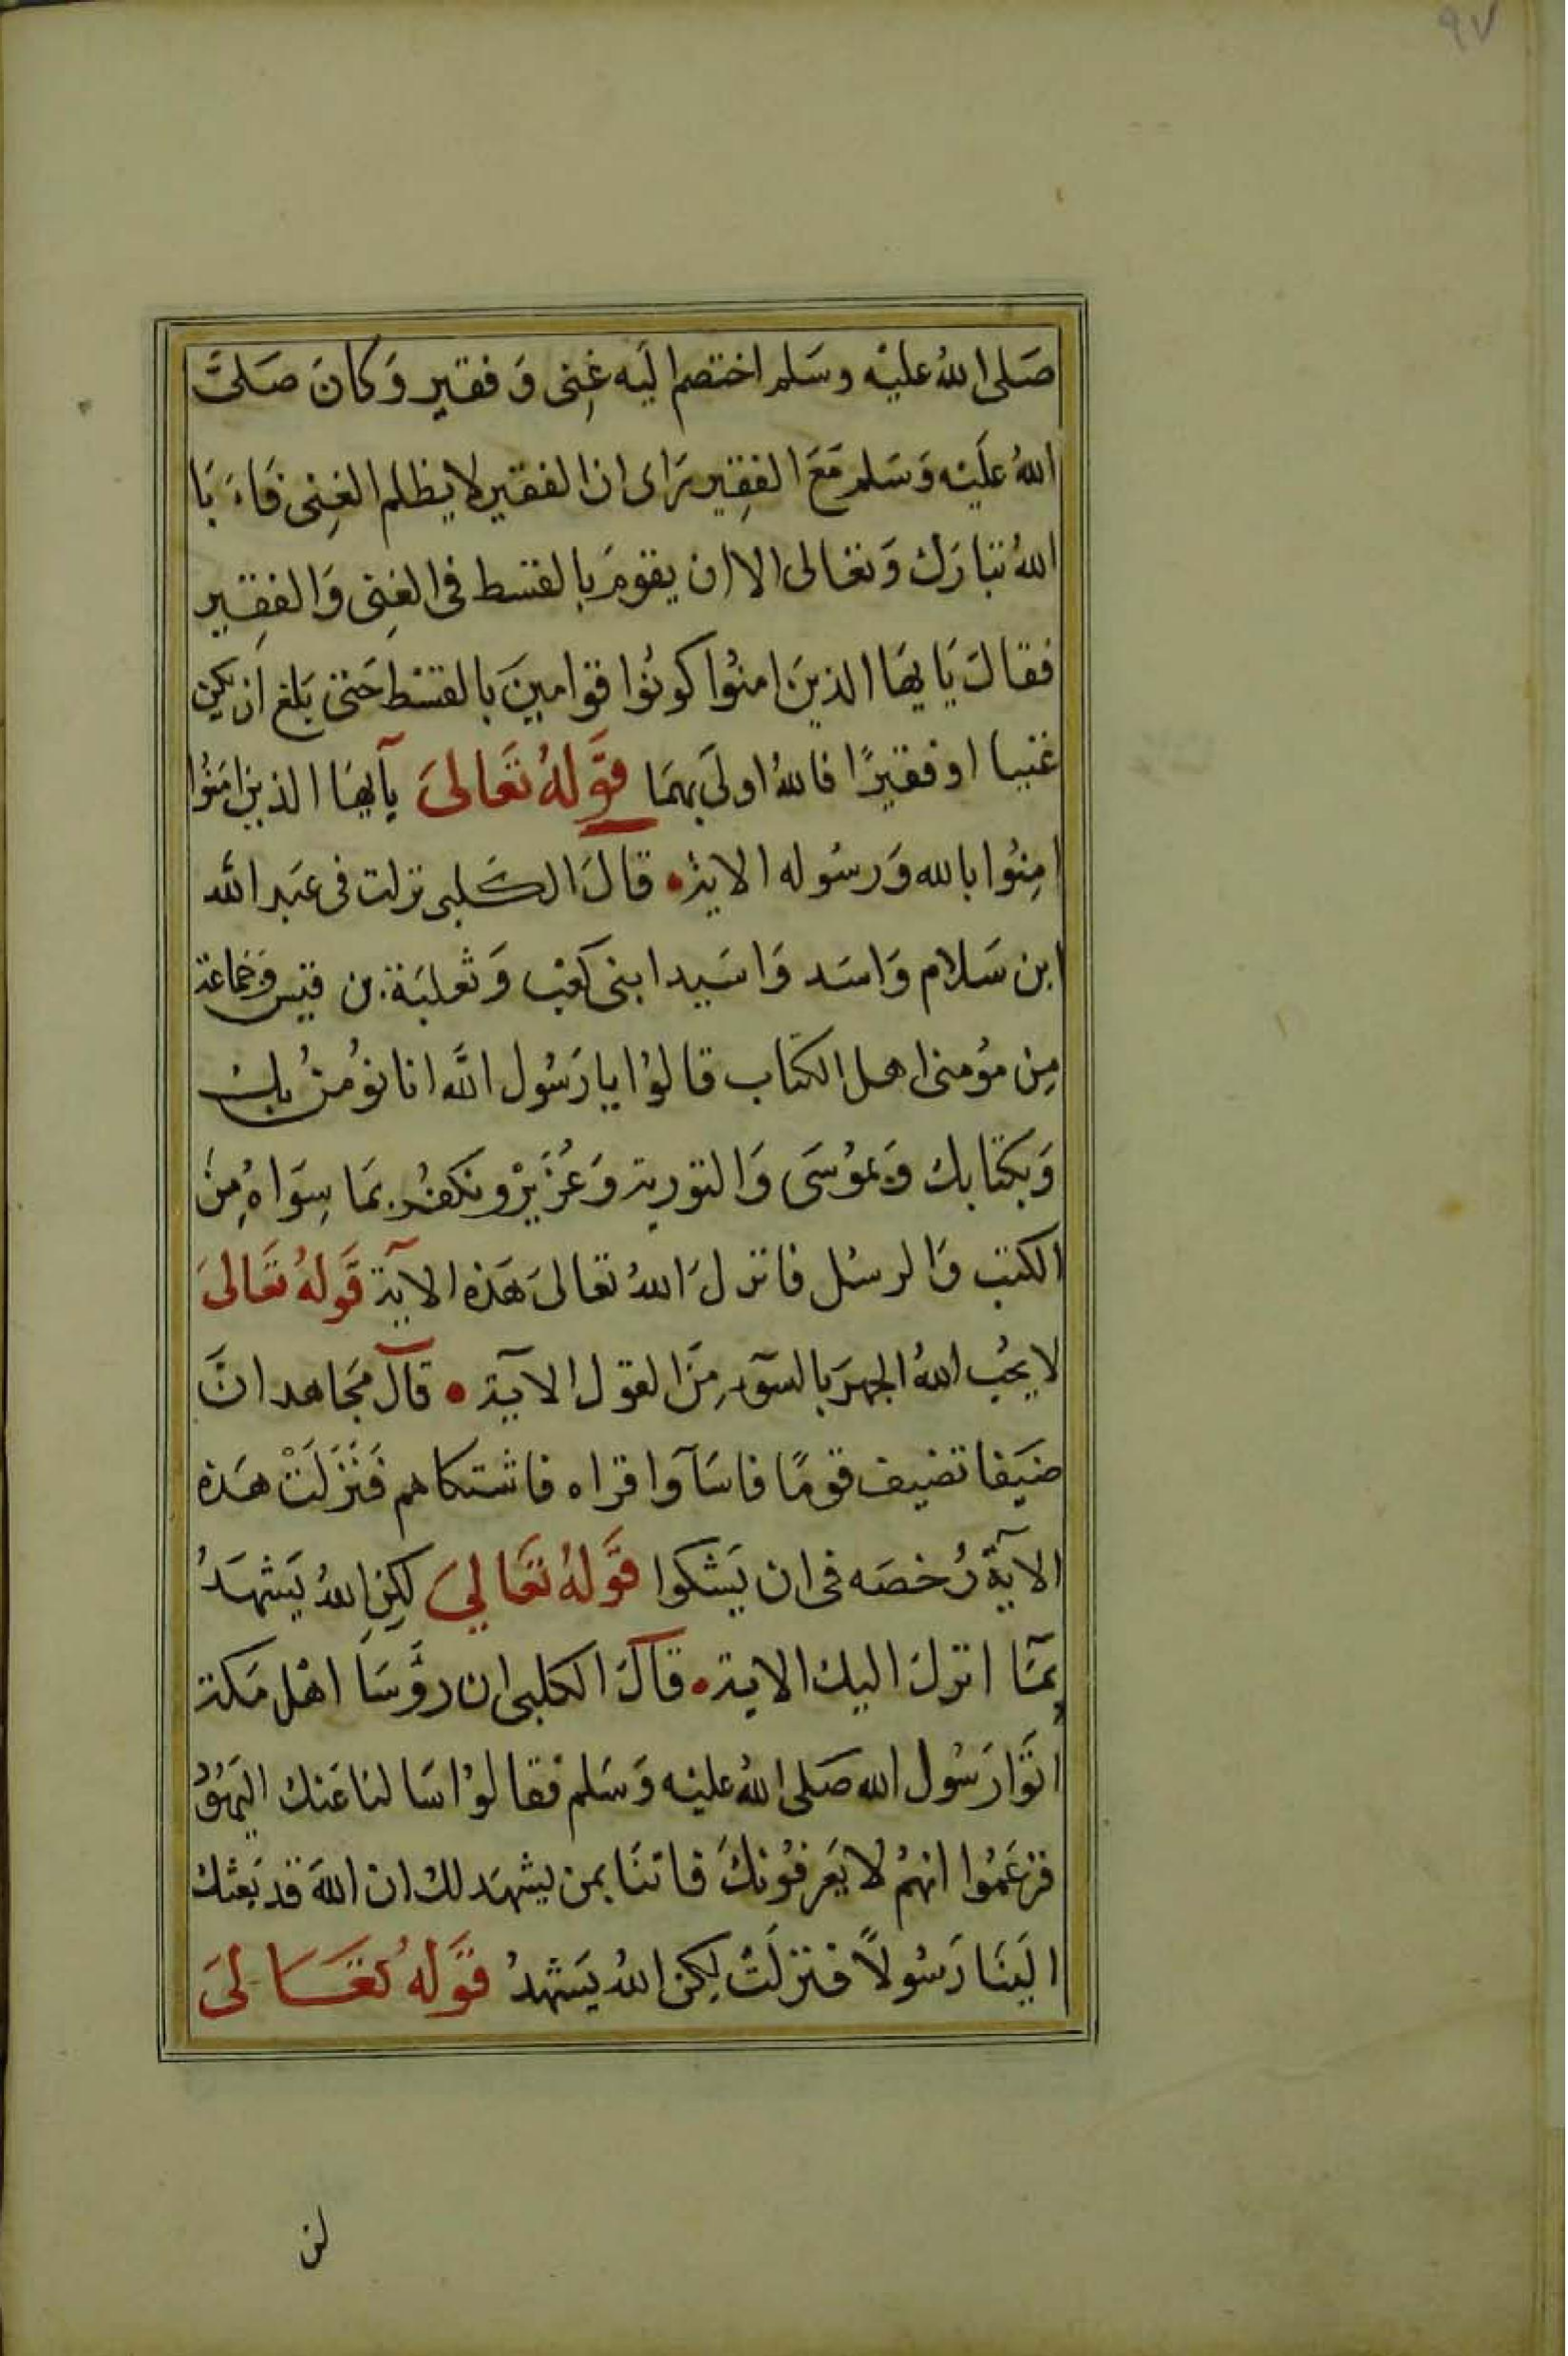 ٩٧
صَلى اللهُ عليْه وسَلم اختصم اليَه غِنى وَ فقير وَكانَ صَلىَّ
اللهُ علَيْه وَسَلم مَعَ الفقِير يرَاى ان الفقير لا يظلم الغِنى فَاءَ بَا
اللهُ تبَارَك وَتعَالى الا ان يقومَ بالقسط فى الغِنى وَالفقِير
فقالَ يَايهَا الذينَ امنُوا كونُوا قوامينَ بالقسْط حَتى بَلغ ان يكن
غنيا او فقيرًا فاللهُ اولىَ بهمَا قَولهُ تعَالىَ يآيهَا الذين امَنُوا
امِنُوا بالله وَرسُوله الاية قالَ الكَلبى نزلت فى عَبد الله
ابن سَلام وَاسَد وَاسَيد ابنى كعْب وَثعلبَة بن قيس وَجَماعة
مِن مؤمنى اهل الكتاب قالوُا يا رَسُول الله انا نؤمُنُ بك
وَبكتابك وَبموُسَى وَالتورية وَعُزَيْرْ ونكفُر بمَا سِوَاهُ مِنْ
الكتب وَالرسُل فانزلَ اللهُ تعالىَ هَذه الآية قَولهُ تعَالىَ
لا يحُب اللهُ الجهرَ بالسّوء مِنَ القول الآية قالَ مجَاهد انَّ
ضيَفا تضيف قومًا فاسَآوا قراه فاشتكاهم فَنَزَلَتْ هَذه
الآيةَ رُخصَه فى ان يَشكوا قَولهُ تعَالى لكِنِ اللهُ يَشهَدُ
بمَآ انزلَ اليك الاية قالَ الكلبى ان رؤسَا اهْل مَكة
اتوَا رَسُول الله صَلى اللهُ عليْه وَسَلم فقالوُا سَالنا عَنك اليَهوُدُ
فزعَمُوا انهمُ لا يَعرفوُنكَ فاتنَا بمن يشهَد لك ان اللهَ قد بَعثك
اليَنَا رَسُولاً فنزلَتْ لكِن اللهُ يَشهدُ قَوله تعَالىَ
لن